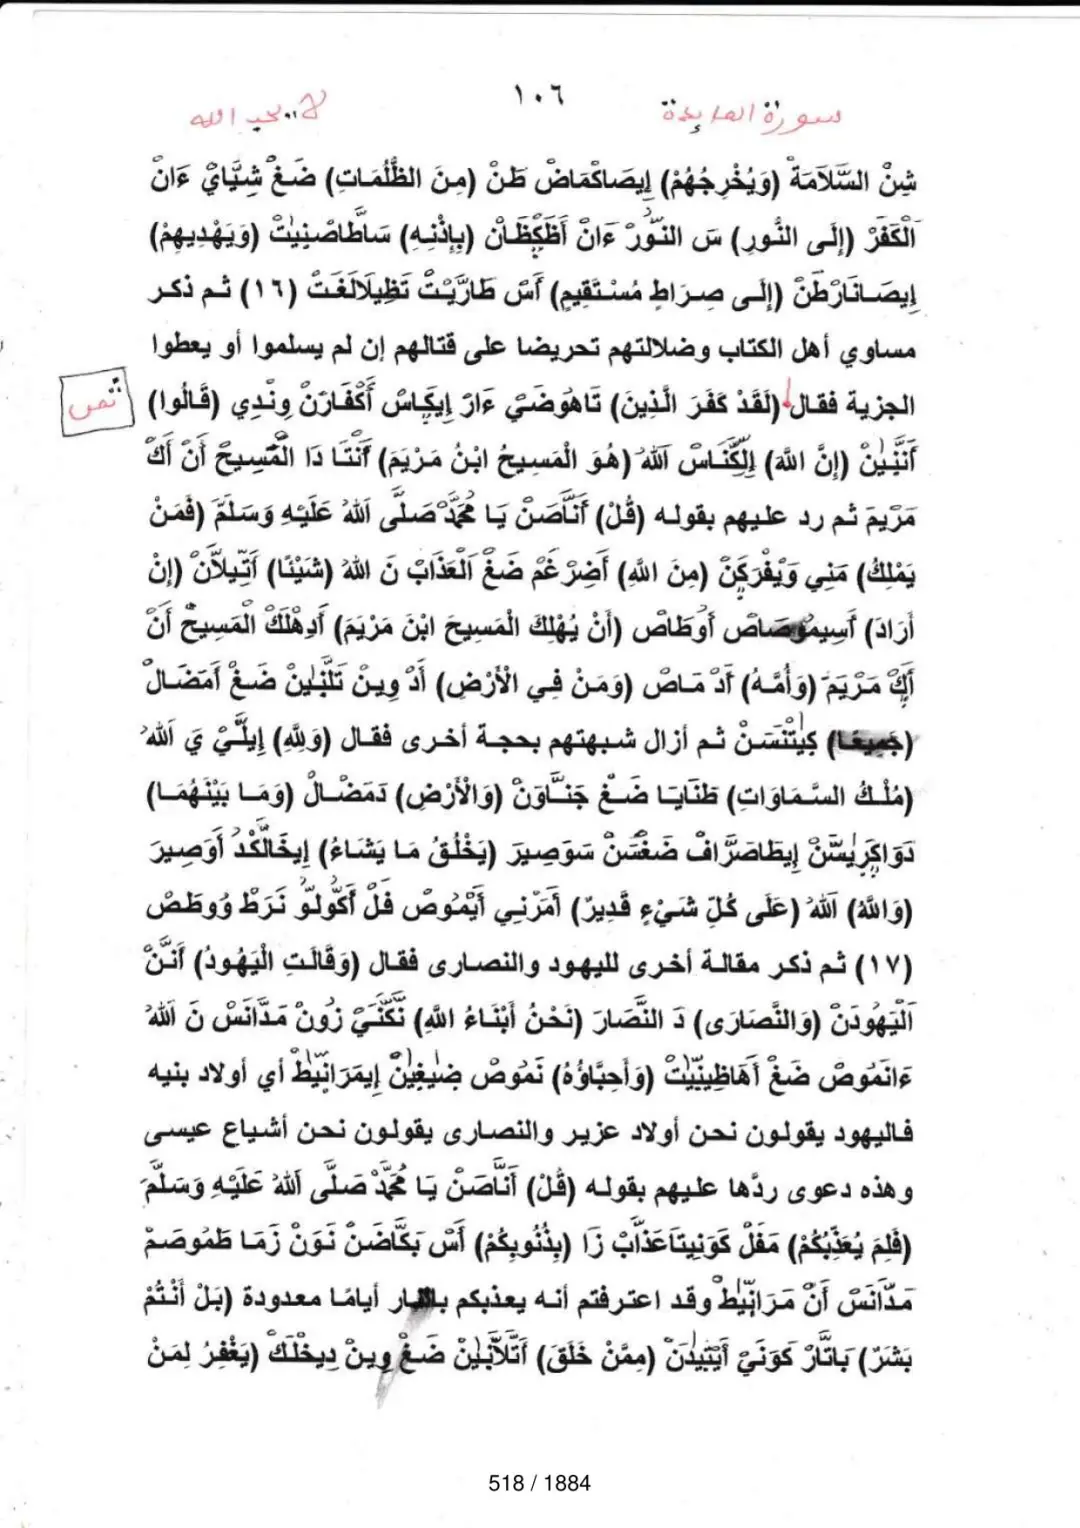 ١٠٦
سورة المايدة
لا يحب الله
شِنْ السَّلَامَةْ (وَيُخْرِجُهُمْ) إِيصَاكْمَاضْ طَنْ (مِنَ الظُّلُمَاتِ) ضَغْ شِيَّايْ ءَانْ
اَلْكَفَرْ (إِلَى النُّورِ) سَ النُّورْ ءَانْ أَظَكِظَانْ (بِإِذْنِهِ) سَاطَاصْنِيتْ (وَيَهْدِيهِمْ)
إِيصَانَارْطَنْ (إِلَى صِرَاطٍ مُسْتَقِيمٍ) أَسْ طَارَّيْتْ تَظِيلَالَغَتْ (١٦) ثم ذكر
مساوي أهل الكتاب وضلالتهم تحريضا على قتالهم إن لم يسلموا أو يعطوا
الجزية فقال (لَقَدْ كَفَرَ الَّذِينَ) تَاهُوضَيْ ءَارْ إِيكَاسْ أَكْفَارَنْ وِنْدِي (قَالُوا)
ثمن
أَنَّنِينْ (إِنَّ اللَّهَ) إِلكَّنَاسْ اَللهْ (هُوَ الْمَسِيحُ ابْنُ مَرْيَمَ) أَنْتَا دَا الْمَسِيحْ أَنْ أَكْ
مَرْيَمَ ثم رد عليهم بقوله (قُلْ) أَنَّاصَنْ يَا مُحَمَّدْ صَلَّى اَللهُ عَلَيْهِ وَسَلَّمَ (فَمَنْ
يَمْلِكُ) مَنِي وَيْفْرَكَنْ (مِنَ اللَّهِ) أَضِرْغَمْ ضَغْ اَلْعَذَابْ نَ اللهْ (شَيْئًا) أَتِيلَانْ (إِنْ
أَرَادَ) أَوُطَاصْ (أَنْ يُهْلِكَ الْمَسِيحَ ابْنَ مَرْيَمَ) أَدِهْلَكْ الْمَسِيحْ أَنْ
أَكْ مَرْيَمَ (وَأُمَّهُ) أَدْ مَاصْ (وَمَنْ فِي الْأَرْضِ) أَدْ وِينْ تَلَّنِينْ ضَغْ أَمَضَالْ
(جَمِيعًا) كِيتْنَسَنْ ثم أزال شبهتهم بحجة أخرى فقال (وَلِلَّهِ) إِيلَّيْ يَ اَللهْ
(مُلْكُ السَّمَاوَاتِ) طَنَايَا ضَغْ جَنَّاوَنْ (وَالْأَرْضِ) دَمَضَالْ (وَمَا بَيْنَهُمَا)
دَوَاكَرِيسَّنْ إِيطَاصَرَّافْ ضَغْسَنْ سَوَصِيرَ (يَخْلُقُ مَا يَشَاءُ) إِيخَالَّكْدْ أَوَصِيرَ
(وَاللَّهُ) اَللهْ (عَلَى كُلِّ شَيْءٍ قَدِيرٌ) أَمَرْنِي أَيْمُوصْ فَلْ أَكُولُوّ نَرَطْ وُوطَصْ
(١٧) ثم ذكر مقالة أخرى لليهود والنصارى فقال (وَقَالَتِ الْيَهُودُ) أَنَّنْ
اَلْيَهُودَنْ (وَالنَّصَارَى) دَ النَّصَارَ (نَحْنُ أَبْنَاءُ اللَّهِ) نَكَّنَيْ زُونْ مَدَّانَسْ نَ اَللهْ
ءَانَمُوصْ ضَغْ أَهَاظِينِّيتْ (وَأَحِبَّاؤُهُ) نَمُوصْ ضِيغِينْ إِيمَرَانِّيطْ أي أولاد بنيه
فاليهود يقولون نحن أولاد عزير والنصارى يقولون نحن أشياع عيسى
وهذه دعوى ردَّها عليهم بقوله (قُلْ) أَنَّاصَنْ يَا مُحَمَّدْ صَلَّى اَللهُ عَلَيْهِ وَسَلَّمَ
(فَلِمَ يُعَذِّبُكُمْ) مَفَلْ كَوَنِيتَاعَذَّابْ زَا (بِذُنُوبِكُمْ) أَسْ بَكَّاضَنْ نَوَنْ زَمَا طَمُوصَمْ
مَدَّانَسْ أَنْ مَرَانِّيطْ وقد اعترفتم أنه يعذبكم بالنار أيامًا معدودة (بَلْ أَنْتُمْ
بَشَرٌ) بَاتَّارْ كَوَنَيْ أَيْتِيدَنْ (مِمَّنْ خَلَقَ) أَتَلَّانِينْ ضَغْ وِينْ دِيخْلَكْ (يَغْفِرُ لِمَنْ
518 / 1884